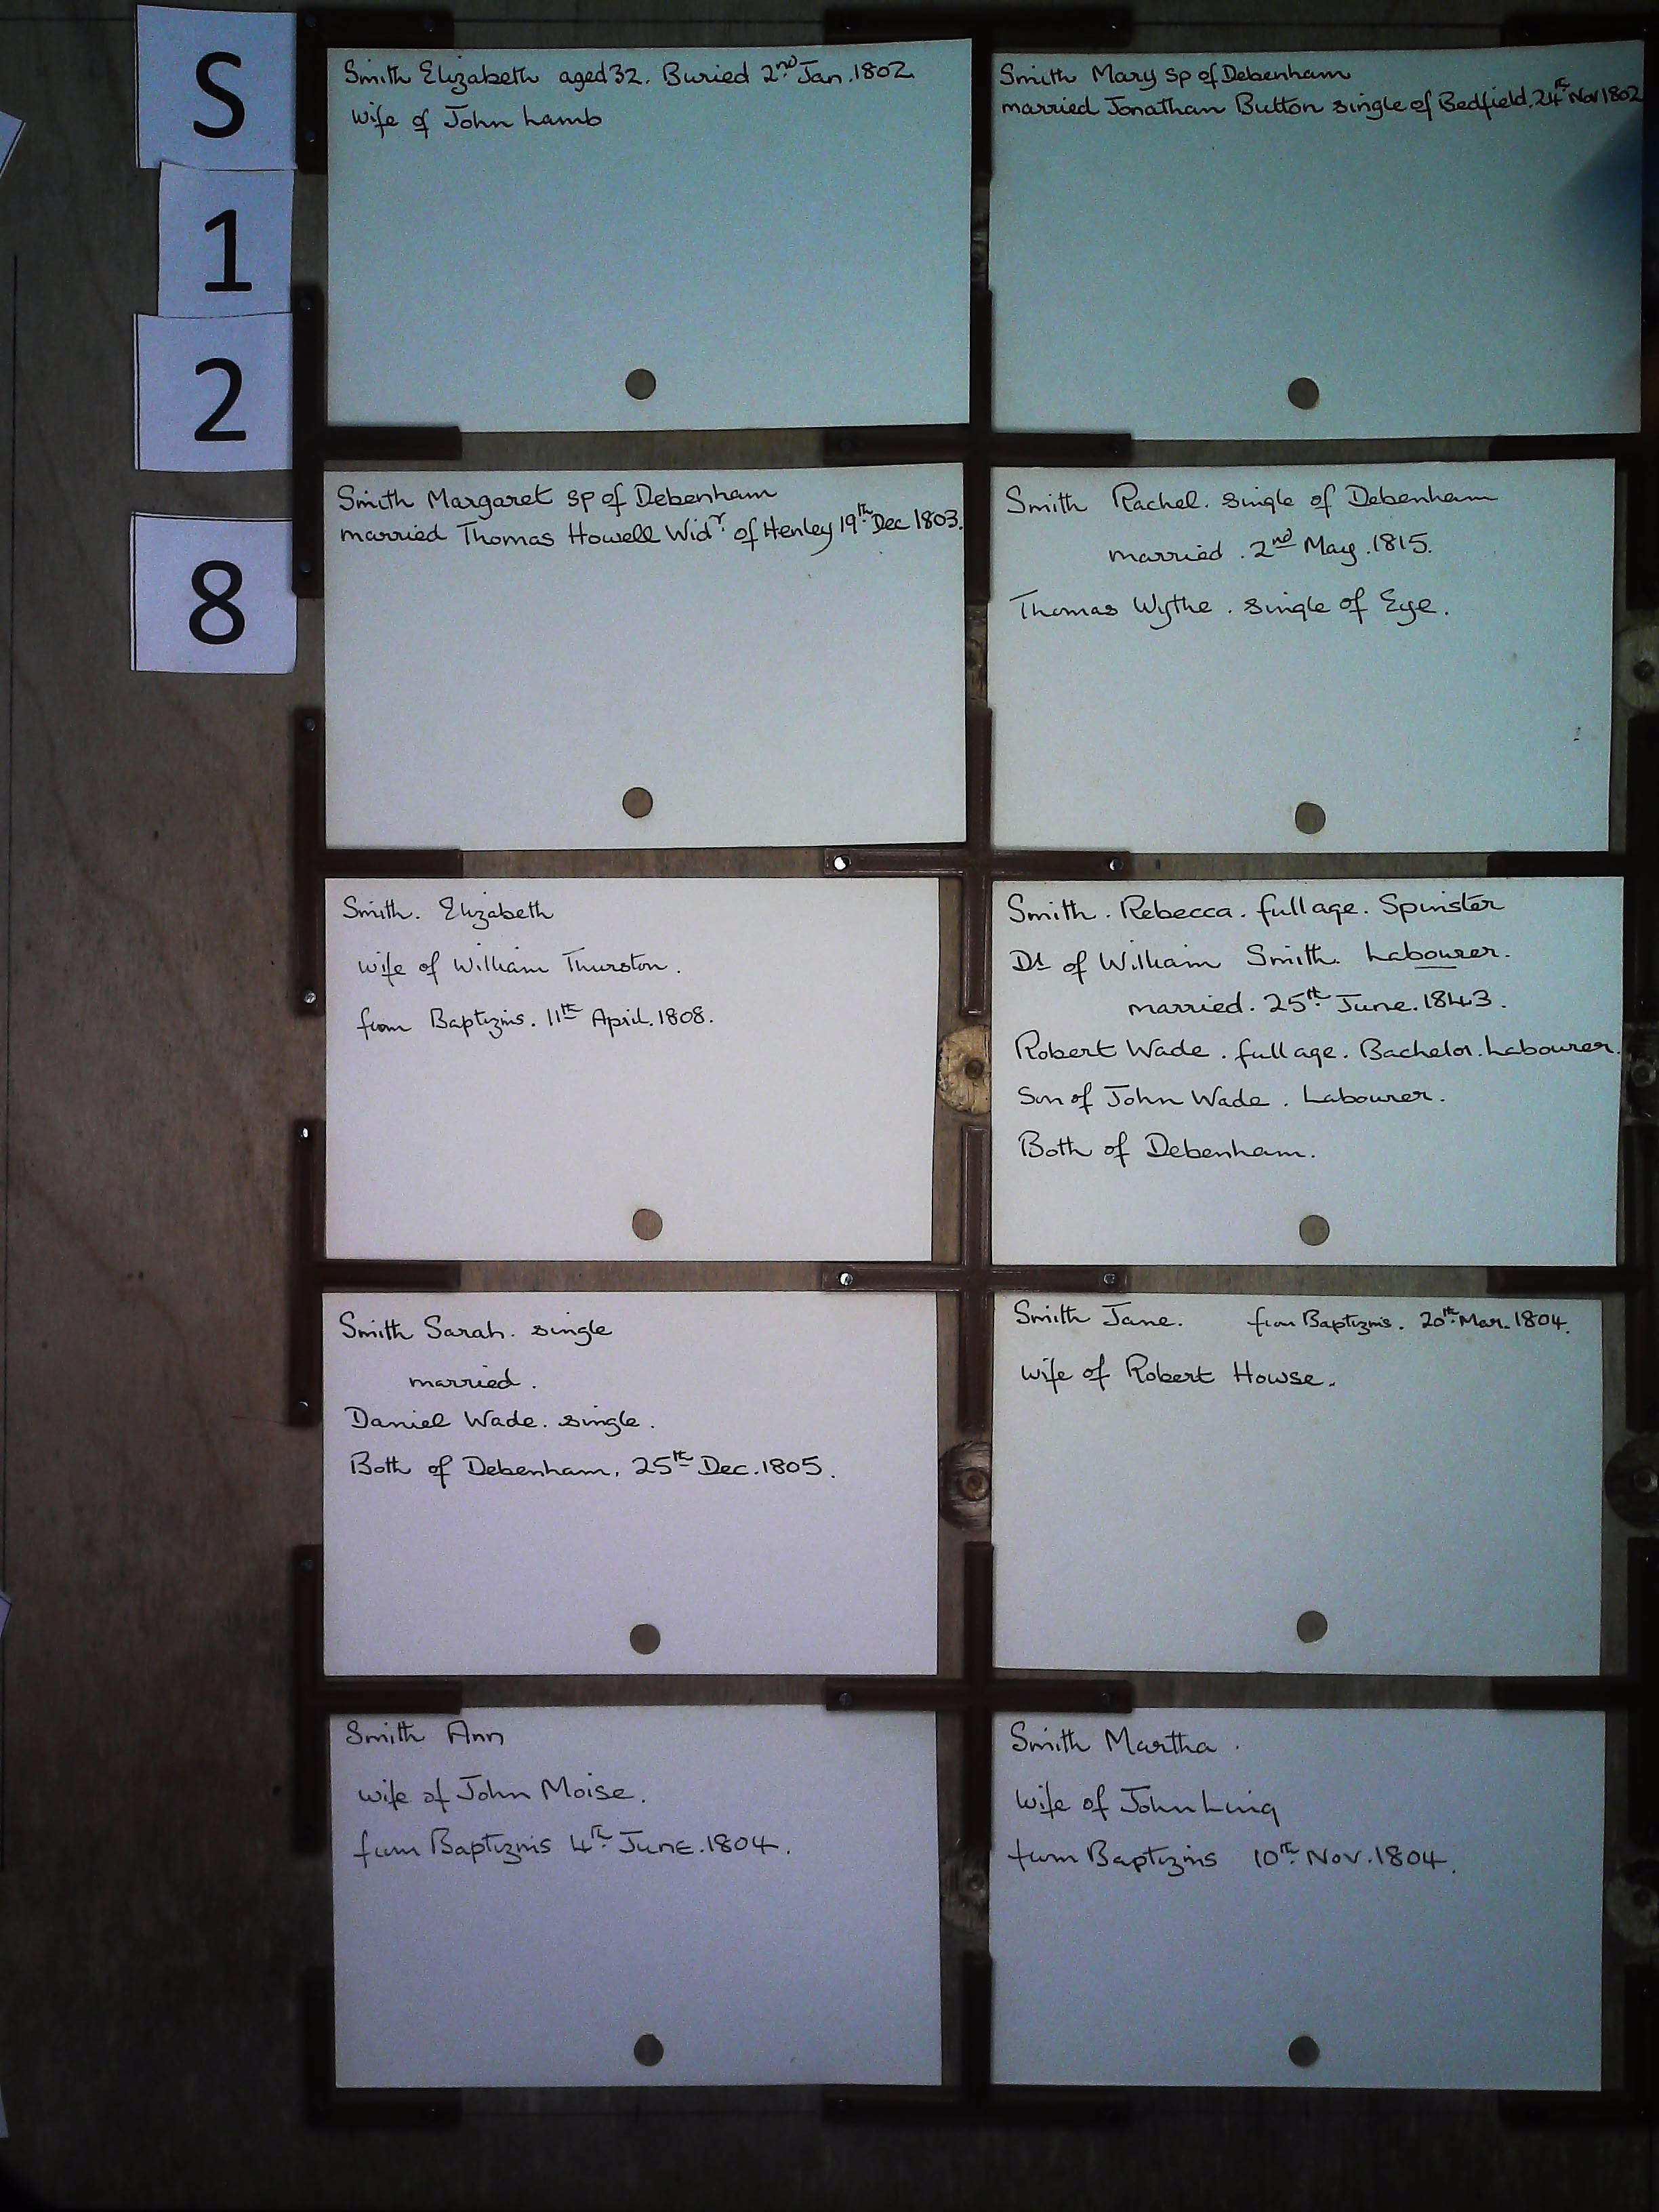 S
1
2
8
Smith Elizabeth aged 32. Buried 2nd Jan. 1802
wife of John Lamb
Smith Mary sp of Debenham
married Jonathan Button single of Bedfield. 24th Nov 1802
Smith Margaret sp of Debenham
married Thomas Howell Widr. of Henley 19th Dec 1803.
Smith Rachel. single of Debenham
married. 2nd May. 1815.
Thomas Wythe. single of Eye.
Smith. Elizabeth
wife of William Thurston.
from Baptizms. 11th April. 1808.
Smith. Rebecca. full age. Spinster
Dt of William Smith. Labourer.
married. 25th June. 1843.
Robert Wade. full age. Bachelor. Labourer.
Son of John Wade. Labourer.
Both of Debenham.
Smith Sarah. single
married.
Daniel Wade. single.
Both of Debenham. 25th Dec. 1805.
Smith Jane. from Baptizms. 20th Mar. 1804.
wife of Robert Howse.
Smith Ann
wife of John Moise.
from Baptizms 4th June. 1804.
Smith Martha.
wife of John Ling
from Baptizms 10th Nov. 1804.